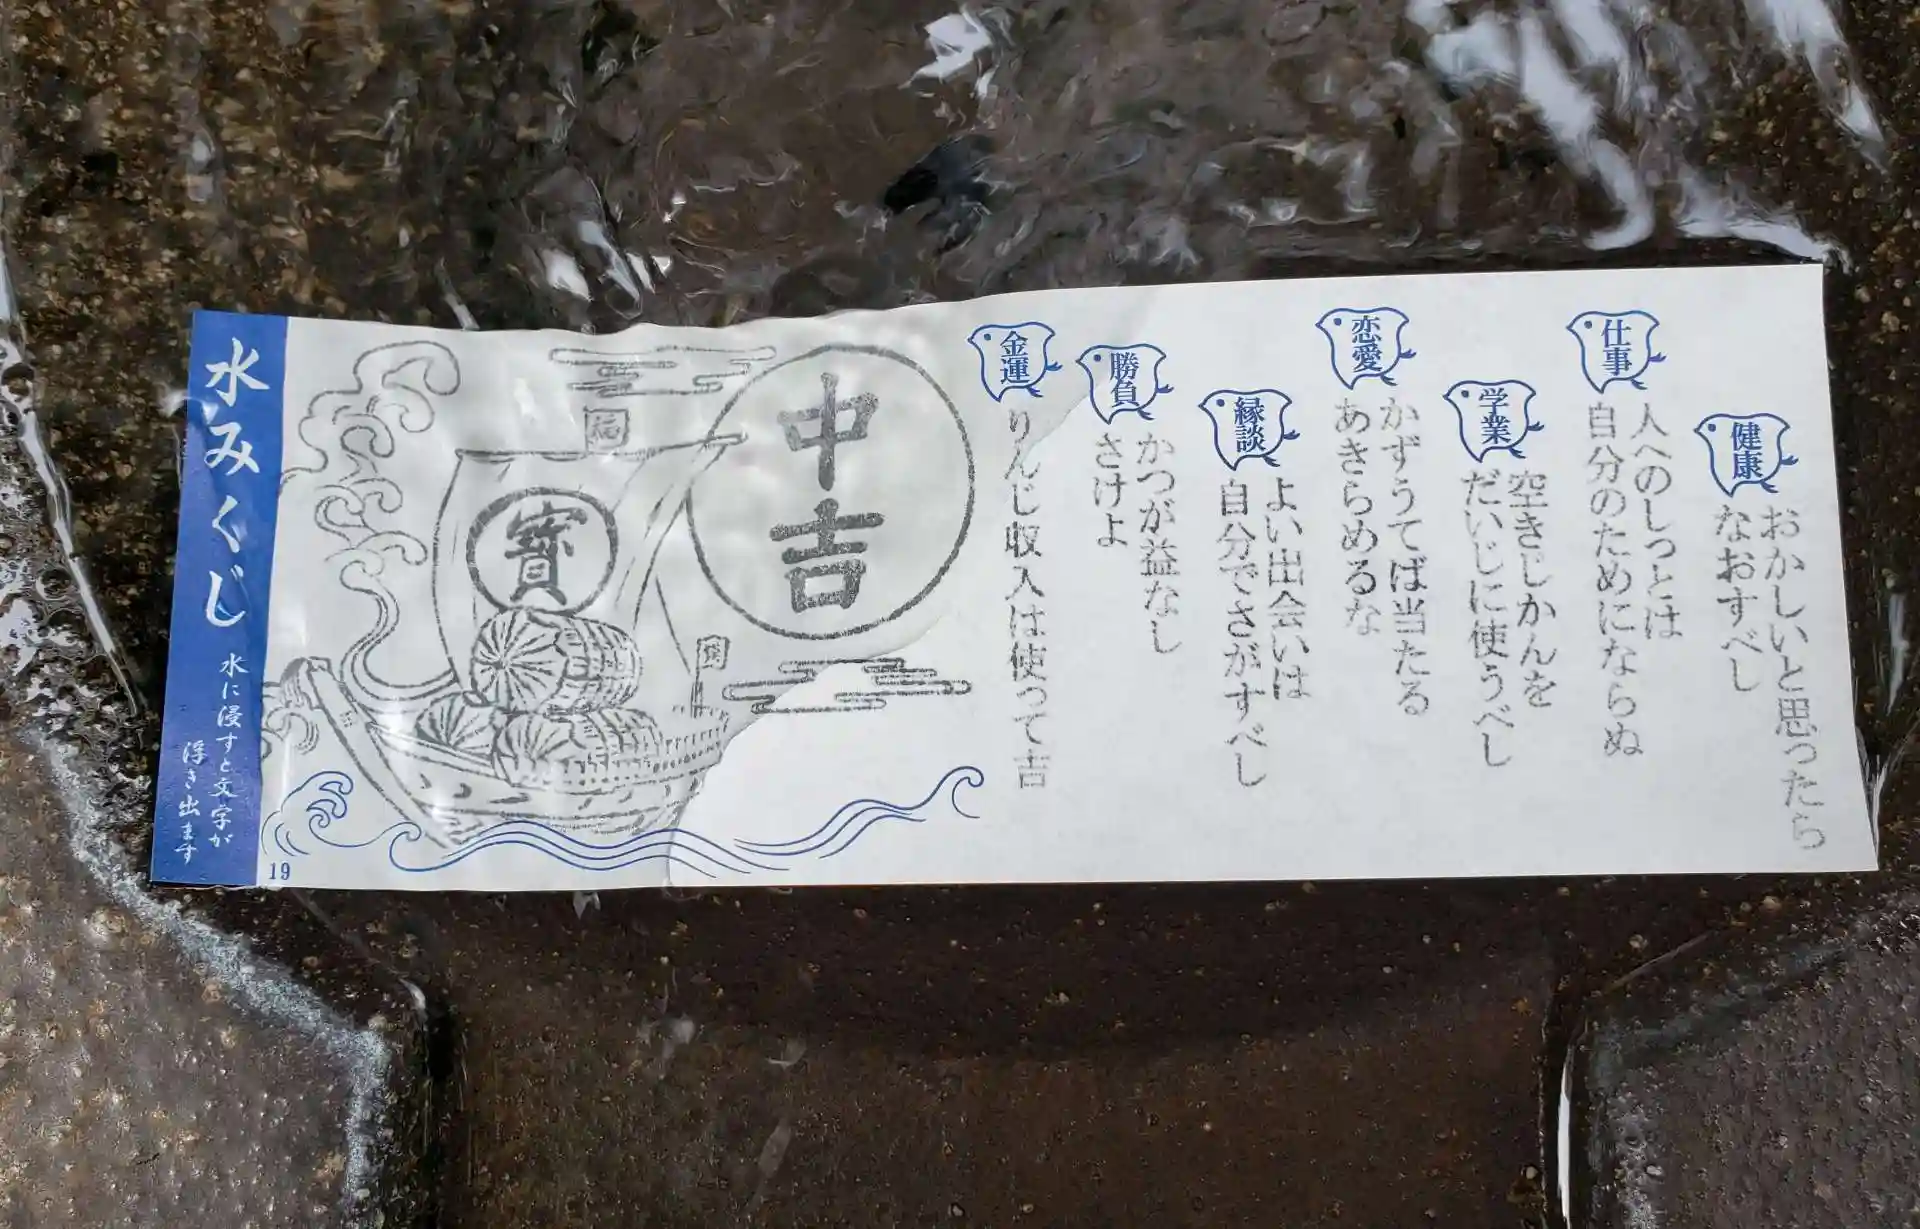 健康
おかしいと思ったら
なおすべし
仕事
人へのしっとは
自分のためにならぬ
学業
空きじかんを
だいじに使うべし
恋愛
かずうてば当たる
あきらめるな
縁談
よい出会いは
自分でさがすべし
勝負
かつが益なし
さけよ
金運
りんじ収入は使って吉
中吉
寶
福
水みくじ
水に浸すと文字が
浮き出ます
19